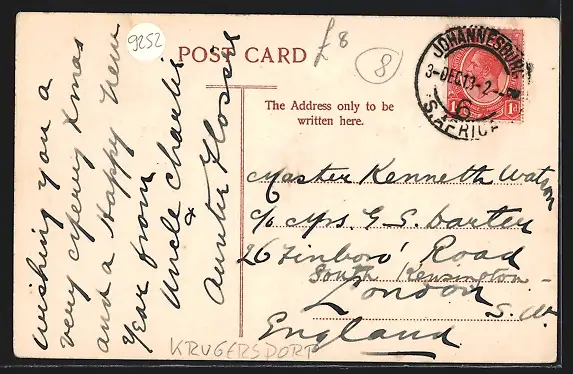 9252
POST CARD
£8
8
JOHANNESBURG
3-DEC 13-2
6
S. AFRICA
1d 1d
The Address only to be
written here.
Wishing you a
very Merry Xmas
and a Happy New
Year from
Uncle Charlie
&
Auntie Flossie
Master Kenneth Watson
c/o Mrs. G. S. Harter
26 Finboro' Road
South Kensington
London
S. W.
England
KRUGERSDORP